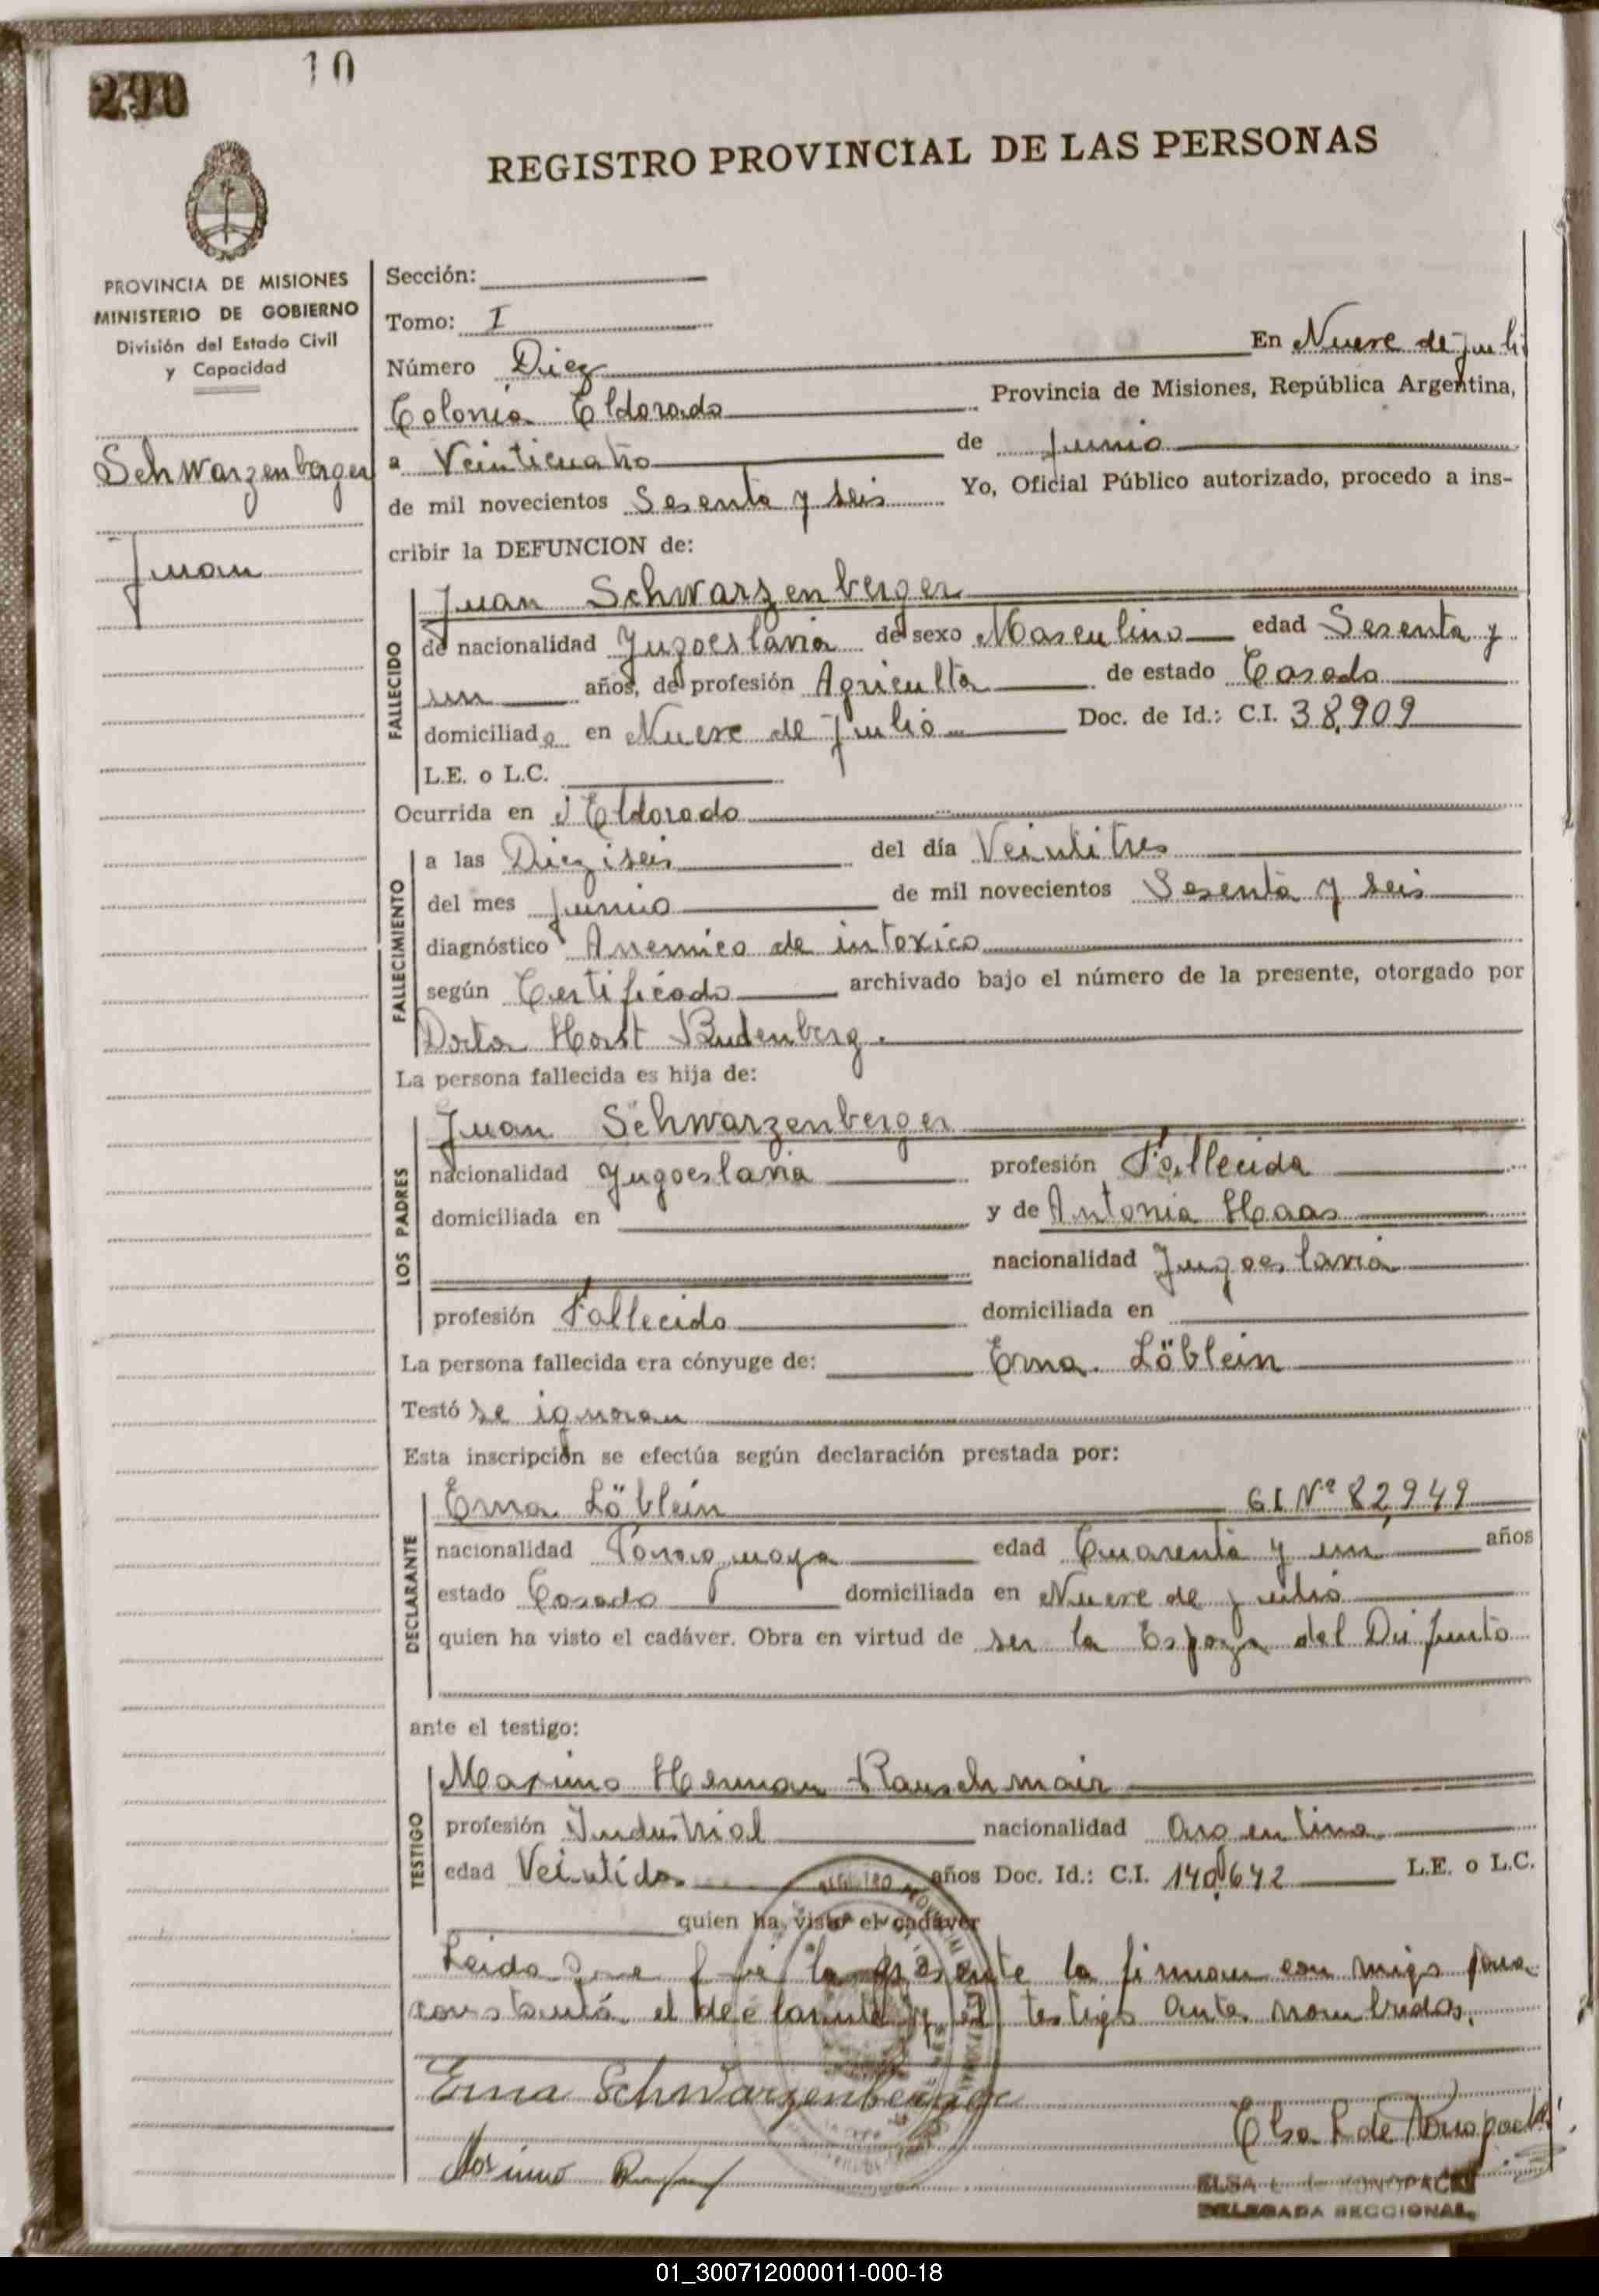 290
10
REGISTRO PROVINCIAL DE LAS PERSONAS
PROVINCIA DE MISIONES
MINISTERIO DE GOBIERNO
División del Estado Civil
y Capacidad
Schwarzenberger
Juan
Sección:
Tomo: I
Número Diez En Nueve de Juli
Colonia Eldorado Provincia de Misiones, República Argentina,
a Veinticuatro de Junio
de mil novecientos Sesenta y seis Yo, Oficial Público autorizado, procedo a ins-
cribir la DEFUNCION de:
FALLECIDO
Juan Schwarzenberger
de nacionalidad Jugoeslavia de sexo Masculino edad Sesenta y
un años, de profesión Agriculto de estado Casado
domiciliado en Nueve de Julio Doc. de Id.: C.I. 38,909
L.E. o L.C.
Ocurrida en Eldorado
FALLECIMIENTO
a las Dieziseis del día Veintitres
del mes Junio de mil novecientos Sesenta y seis
diagnóstico Anemico de intoxico
según Certificado archivado bajo el número de la presente, otorgado por
Doctor Horst Budenberg.
La persona fallecida es hija de:
LOS PADRES
Juan Schwarzenberger
nacionalidad Jugoeslavia profesión Fallecida
domiciliada en y de Antonia Haas
nacionalidad Jugoeslavia
profesión Fallecido domiciliada en
La persona fallecida era cónyuge de: Erna Löblein
Testó se ignoran
Esta inscripción se efectúa según declaración prestada por:
DECLARANTE
Erna Löblein C.I. Nº 82,949
nacionalidad Paraguaya edad Cuarenta y un años
estado Casado domiciliada en Nueve de Julio
quien ha visto el cadáver. Obra en virtud de ser la Espoza del Difunto
ante el testigo:
TESTIGO
Maximo Herman Rauschmair
profesión Industrial nacionalidad Argentina
edad Veintidos años Doc. Id.: C.I. 140,642 L.E. o L.C.
quien ha visto el cadáver
Leida que fue la presente la firman con migo para
constancia el declarante y el testigo antes nombrados.
Erna Schwarzenberger
Elsa L de Konopacki
ELSA L. de KONOPACKI
DELEGADA SECCIONAL
01_300712000011-000-18